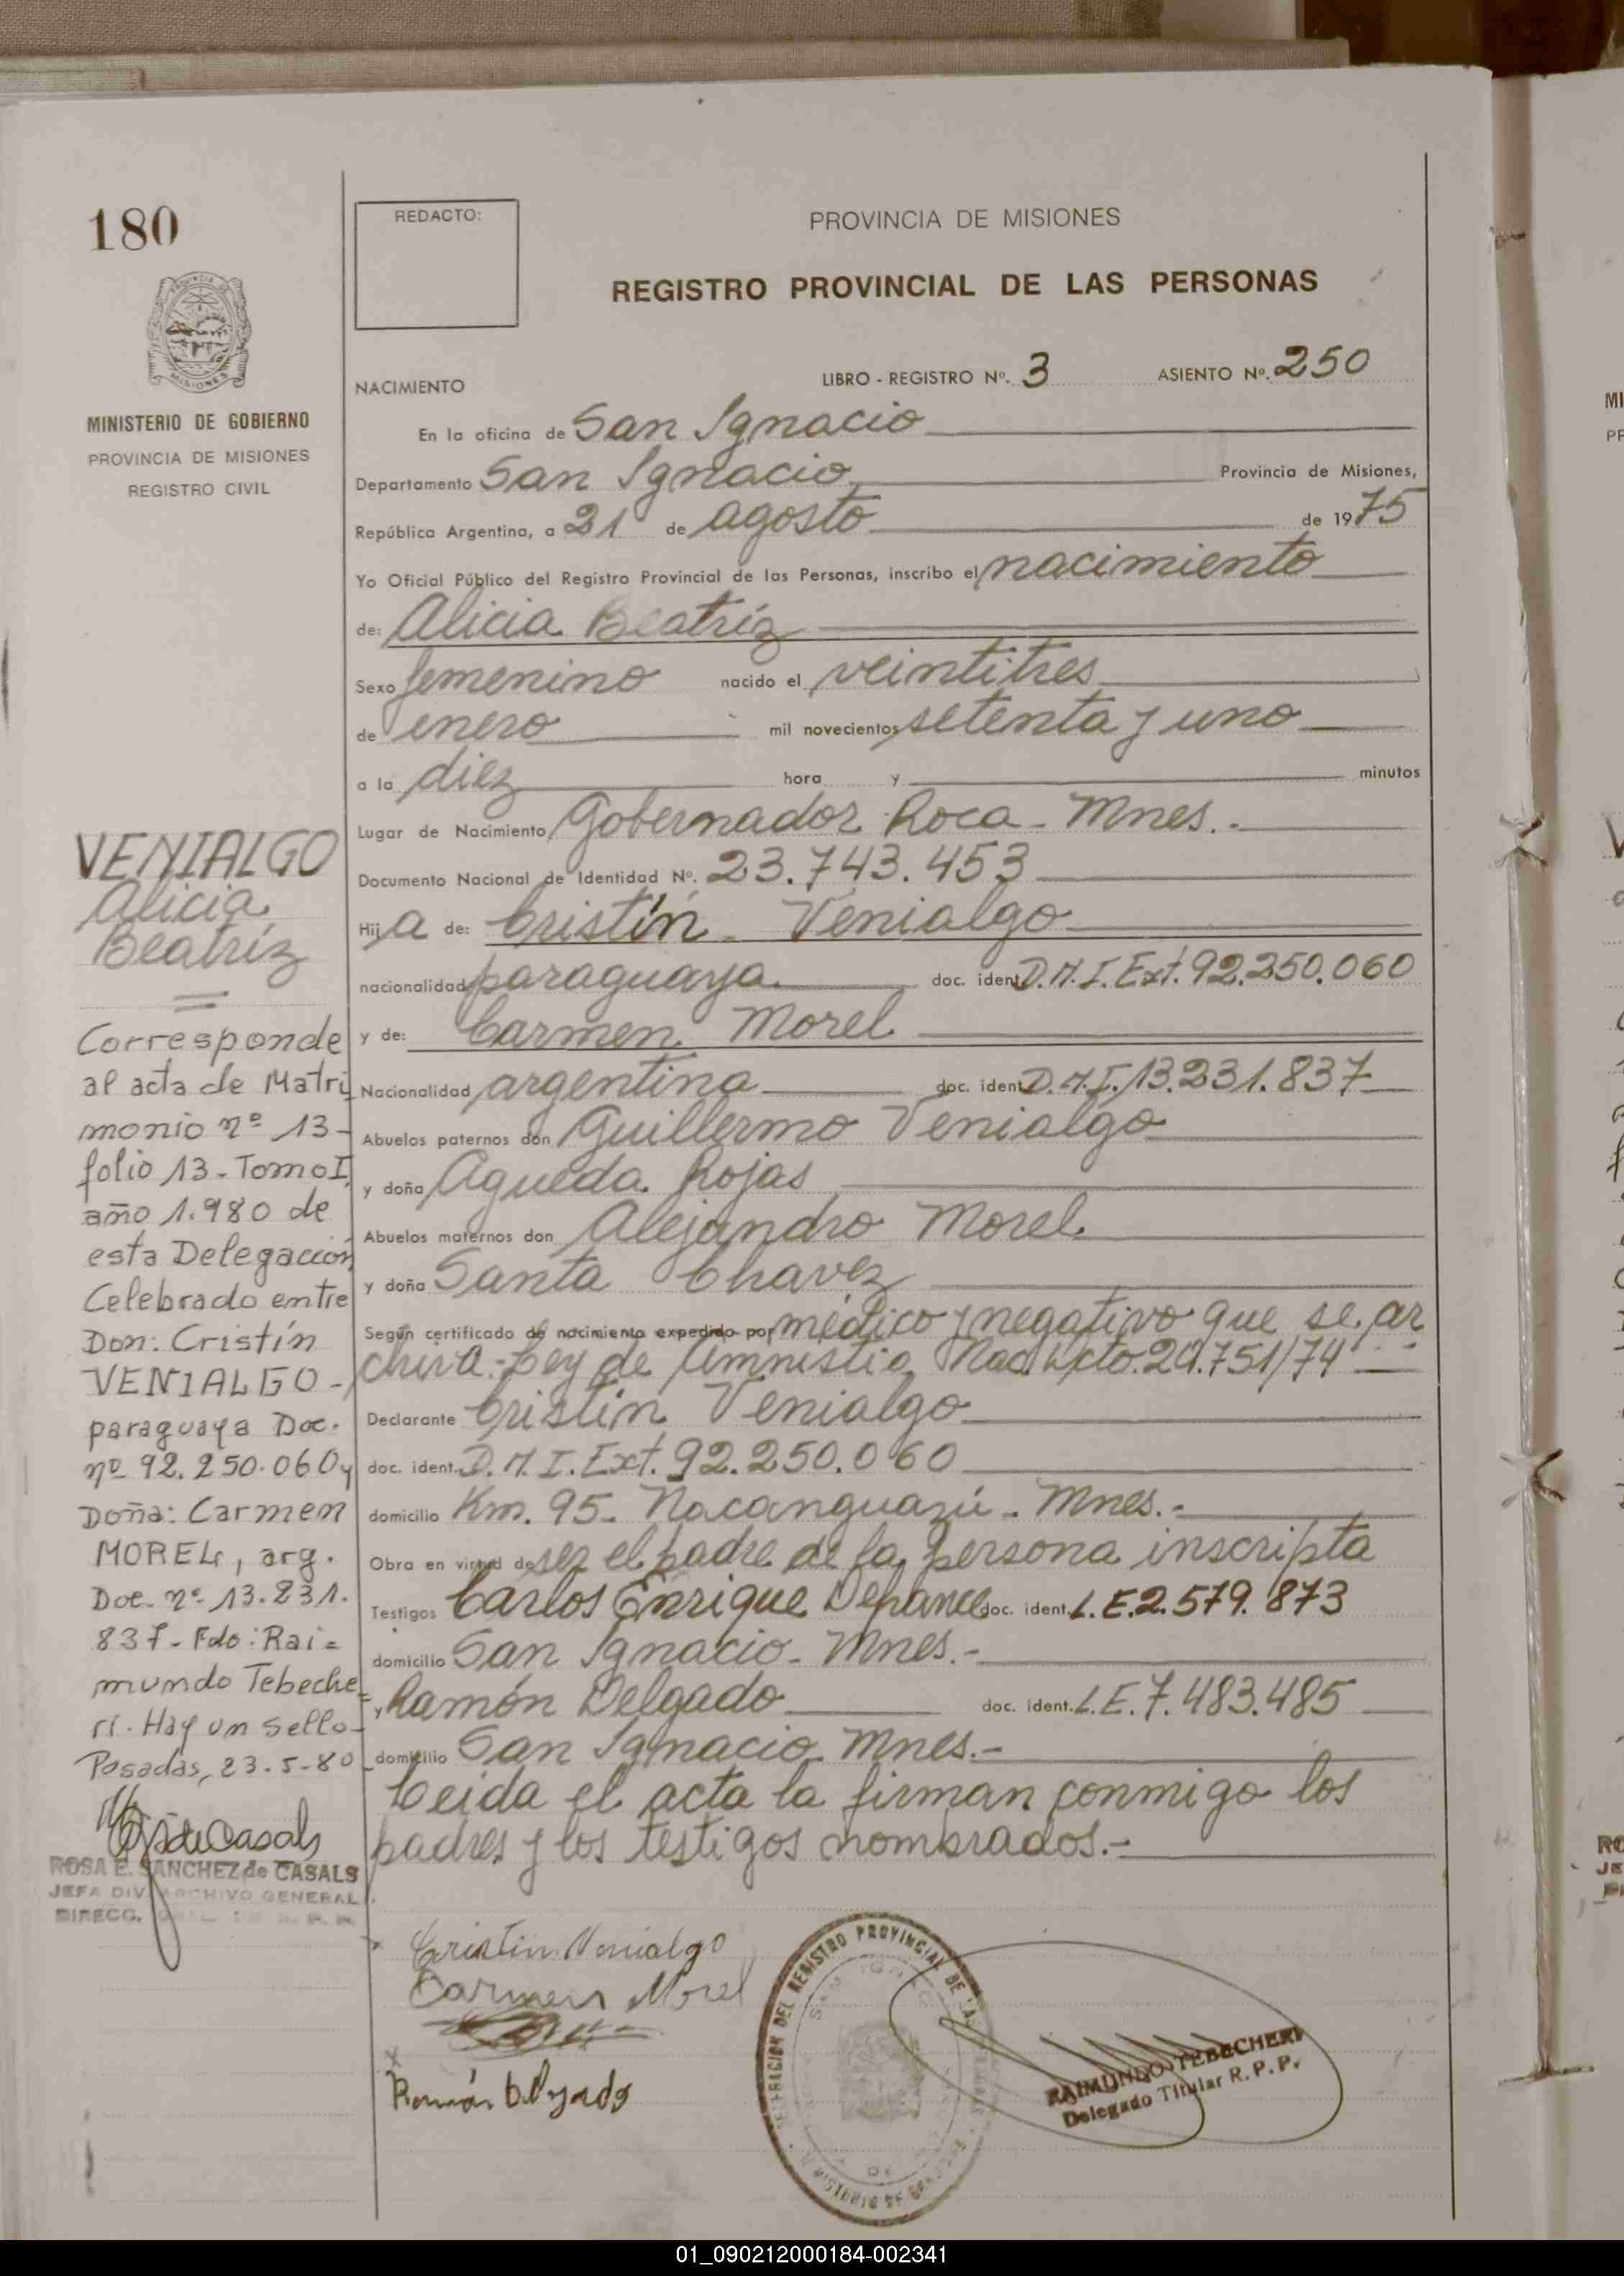 180
MINISTERIO DE GOBIERNO
PROVINCIA DE MISIONES
REGISTRO CIVIL
REDACTO:
PROVINCIA DE MISIONES
REGISTRO PROVINCIAL DE LAS PERSONAS
NACIMIENTO
LIBRO - REGISTRO Nº. 3 ASIENTO Nº. 250
En la oficina de San Ignacio
Departamento San Ignacio Provincia de Misiones,
República Argentina, a 21 de agosto de 1975
Yo Oficial Público del Registro Provincial de las Personas, inscribo el nacimiento
de: Alicia Beatríz
Sexo femenino nacido el veintitres
de enero mil novecientos setenta y uno
a la diez hora y minutos
Lugar de Nacimiento Gobernador Roca - Mnes.-
Documento Nacional de Identidad Nº. 23.743.453
Hija de: Cristín Venialgo
nacionalidad paraguaya doc. ident. D.N.I. Ext. 92.250.060
y de: Carmen Morel
Nacionalidad argentina doc. ident. D.N.I. 13.231.837
Abuelos paternos don Guillermo Venialgo
y doña Agueda Rojas
Abuelos maternos don Alejandro Morel
y doña Santa Chavez
Según certificado de nacimiento expedido por médico y negativo que se ar
chiva.- Ley de Amnistia Nac. 20.751/74
Declarante Cristín Venialgo
doc. ident. D.N.I. Ext. 92.250.060
domicilio Km. 95 - Ñacanguazú - Mnes.-
Obra en virtud de ser el padre de la persona inscripta
Testigos Carlos Enrique doc. ident. L.E. 2.579.873
domicilio San Ignacio - Mnes.-
y Ramón Delgado doc. ident. L.E. 7.483.485
domicilio San Ignacio Mnes.-
Leida el acta la firman conmigo los
padres y los testigos nombrados.-
VENIALGO
Alicia
Beatríz
Corresponde
al acta de Matri
monio nº 13-
folio 13 - Tomo I
año 1.980 de
esta Delegación
Celebrado entre
Don: Cristín
VENIALGO -
paraguaya Doc.
nº 92.250.060 y
Doña: Carmen
MOREL, arg.
Doc. nº 13.231.
837 - Fdo: Rai=
mundo Tebeche=
ri. Hay un sello-
Posadas, 23-5-80
ROSA E. SANCHEZ de CASALS
JEFA DIV. ARCHIVO GENERAL
DIRECC.
Cristin Venialgo
Carmen Morel
Ramón Delgado
REGISTRO PROVINCIAL DE LAS
RAIMUNDO TEBECHERI
Delegado Titular R.P.P.
01_090212000184-002341